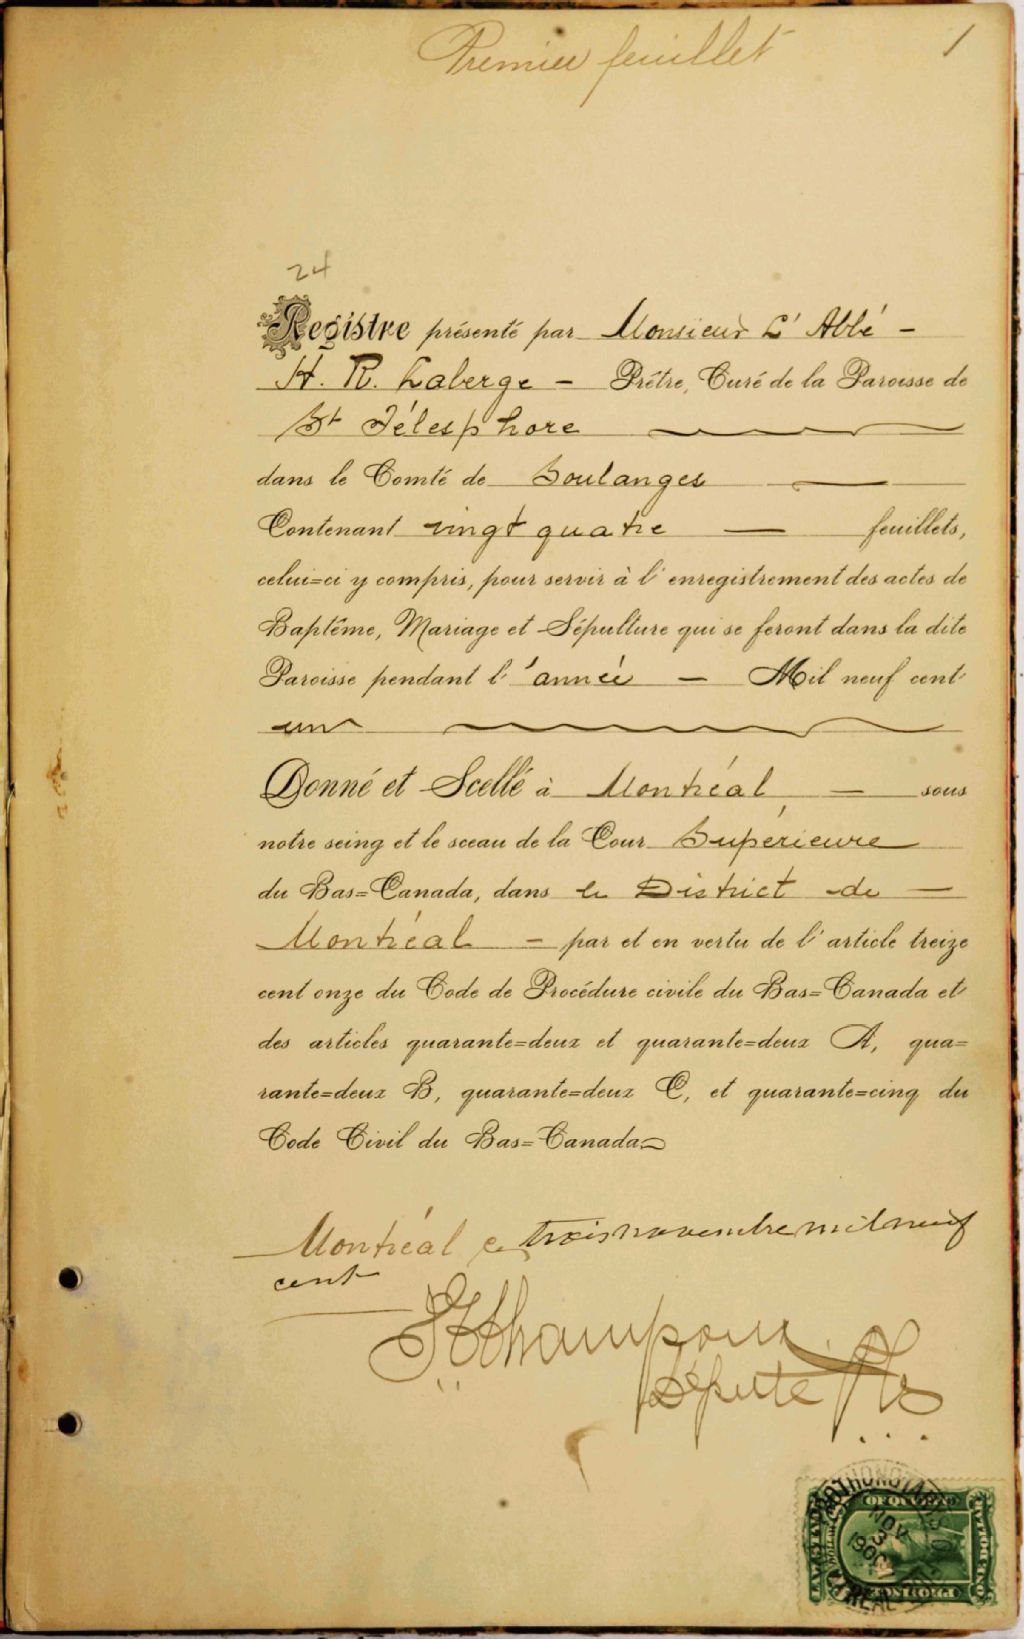 Premier feuillet 1
24
Registre présenté par Monsieur L' Abbé -
H. R. Laberge - Prêtre, Curé de la Paroisse de
St Télesphore
dans le Comté de Soulanges
Contenant vingt quatre feuillets,
celui=ci y compris, pour servir à l'enregistrement des actes de
Baptême, Mariage et Sépulture qui se feront dans la dite
Paroisse pendant l'année - Mil neuf cent
un
Donné et Scellé à Montréal, - sous
notre seing et le sceau de la Cour Supérieure
du Bas=Canada, dans le District de -
Montréal - par et en vertu de l'article treize
cent onze du Code de Procédure civile du Bas=Canada et
des articles quarante=deux et quarante=deux A, qua=
rante=deux B, quarante=deux C, et quarante=cinq du
Code Civil du Bas=Canada
Montréal ce trois novembre mil neuf
cent
Député
NOV
3
1900